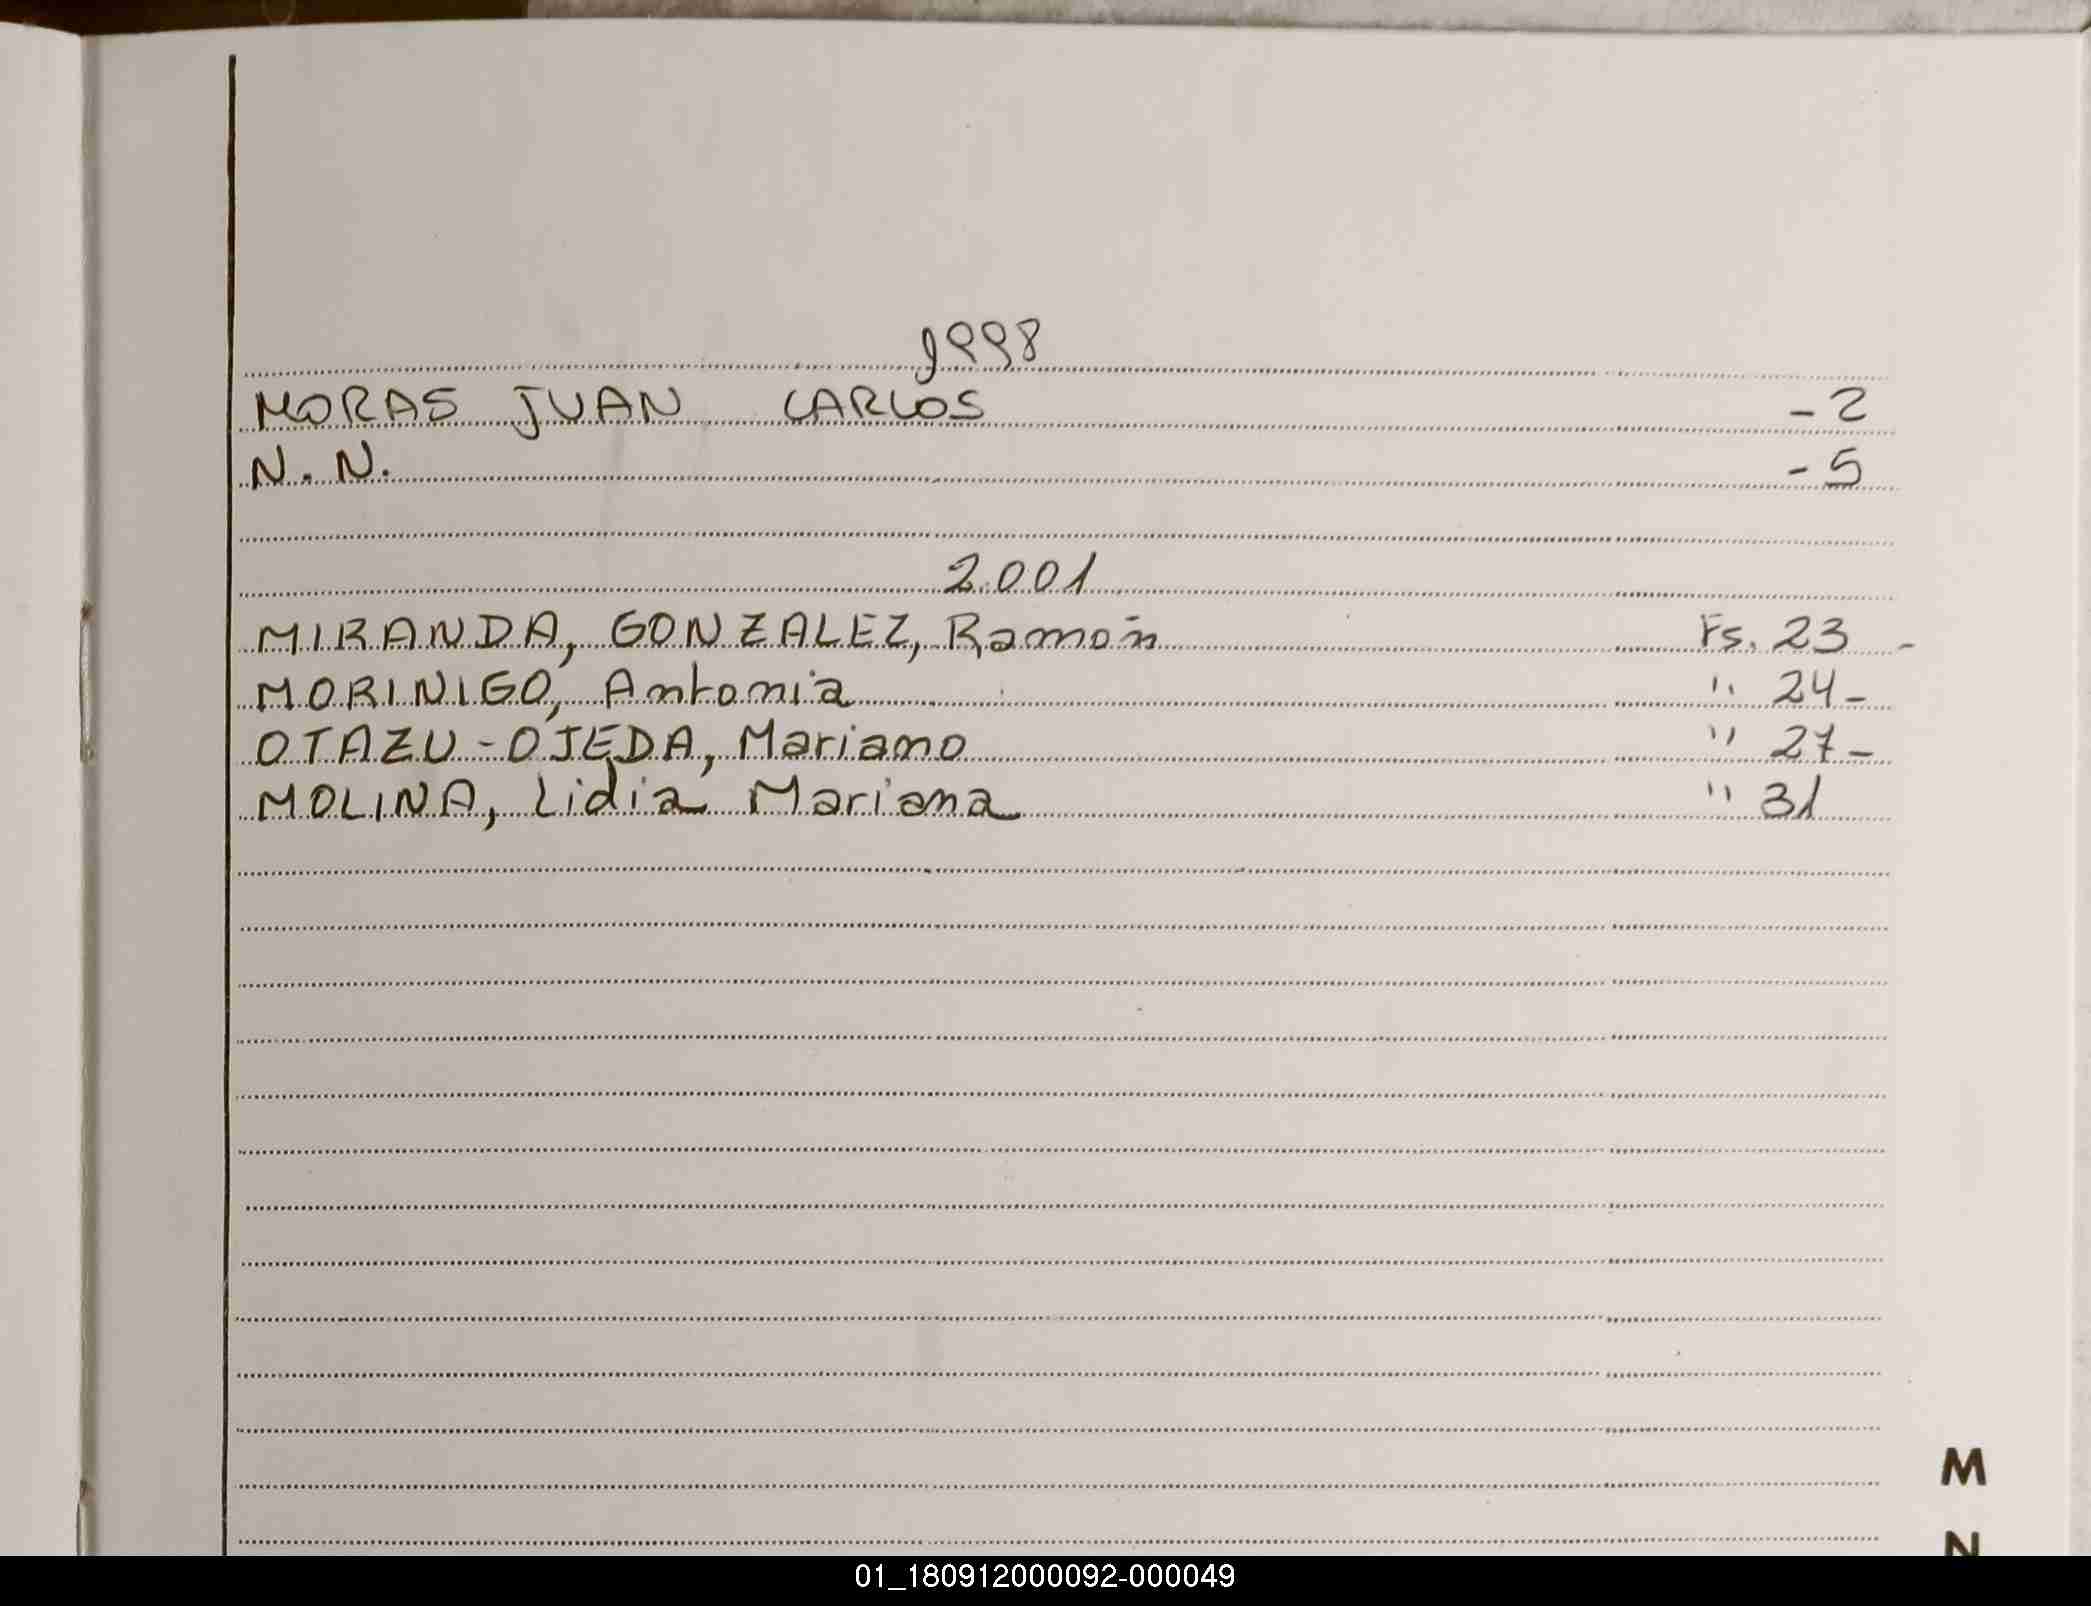 1998
MORAS JUAN CARLOS - 2
N. N. - 5
2.001
MIRANDA, GONZALEZ, Ramón Fs. 23 -
MORINIGO, Antonia " 24 -
OTAZU - OJEDA, Mariano " 27 -
MOLINA, Lidia Mariana " 31
M
N
01_180912000092-000049